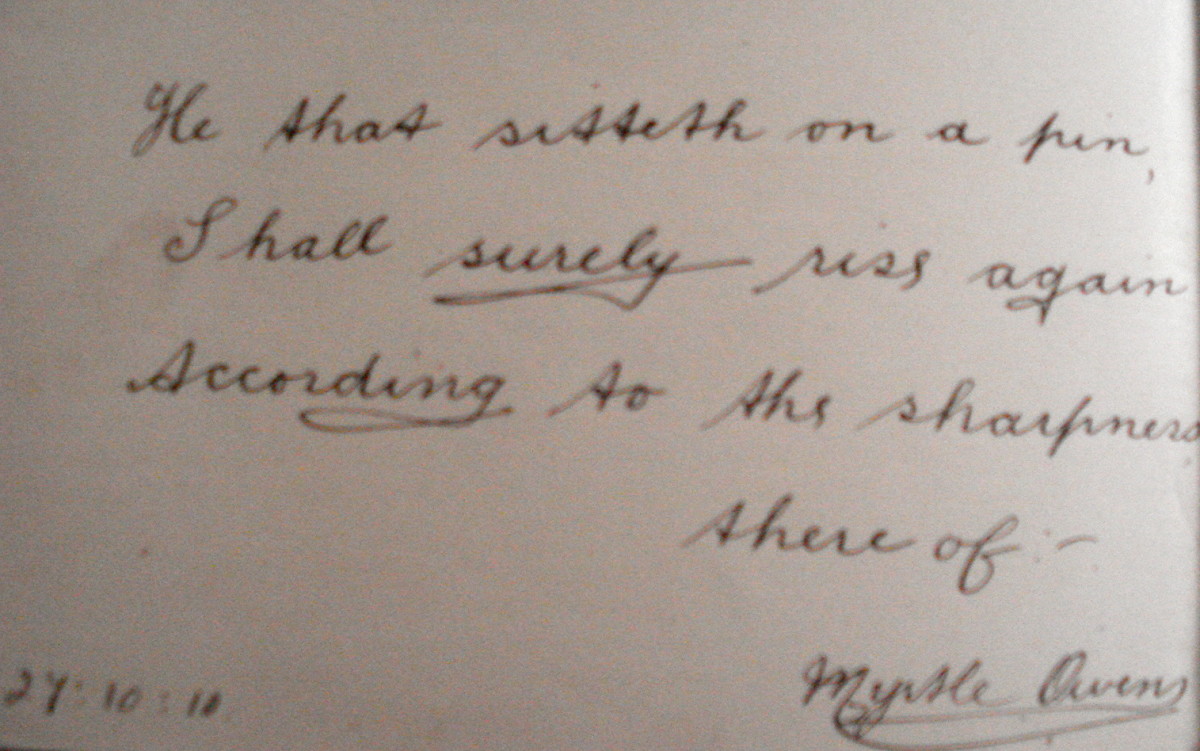 He that sitteth on a pin,
Shall surely rise again
According to the sharpness
there of :-
27:10:10
Myrtle Owens